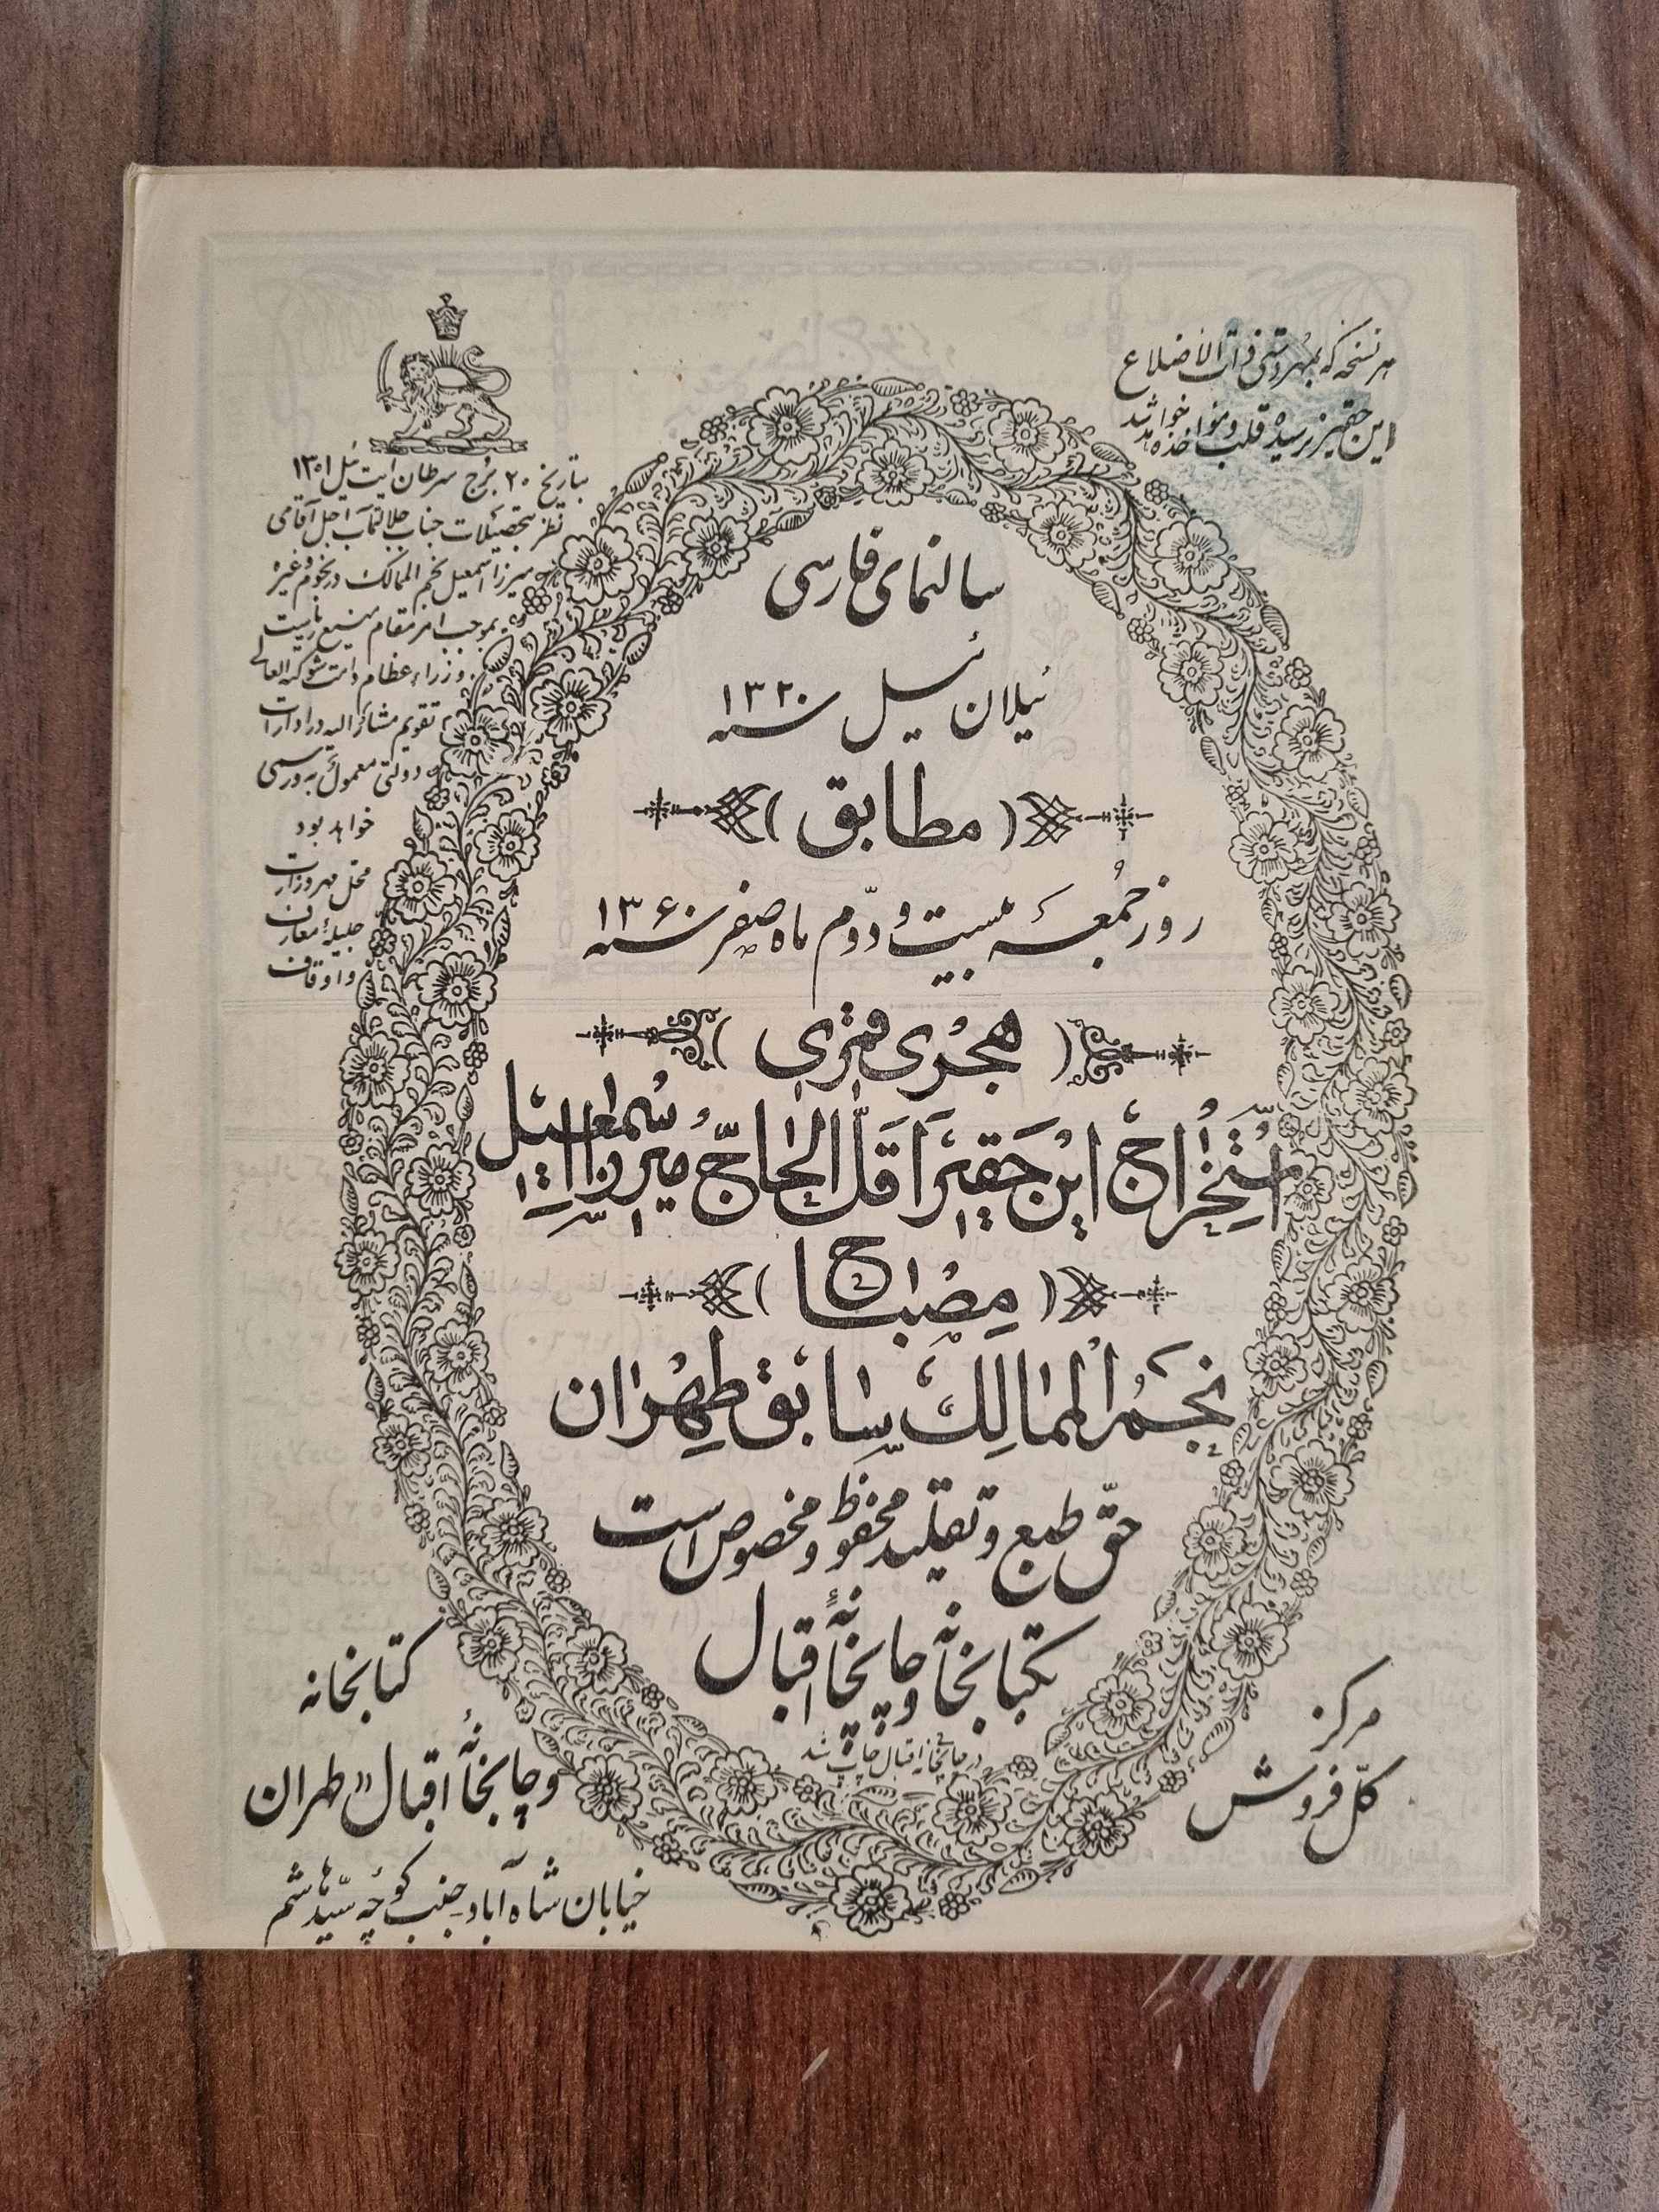 هر نسخه که بمهر و شی ذات الاضلاع
این حقیر نرسیده قلب و مؤاخذه خواهد شد
بتاریخ ۲۰ برج سرطان ایت ئیل ۱۳۰۱
نظر بتحصیلات جناب جلالتمآب اجل آقای
میرزا اسمعیل نجم الممالک در نجوم و غیره
بموجب امر مقام منیع ریاست
وزراء عظام دامت شوکته العالی
تقویم مشار الیه در ادارات
دولتی معمول به و رسمی
خواهد بود
محل مهر وزارت
جلیله معارف
و اوقاف
سالنمای فارسی
ئیلان ئیل سنه ۱۳۲۰
مطابق
روز جُمعهٔ بیست و دوّم ماه صفر سنه ۱۳۶۰
هجری قمری
استخراج این حقیر اقل الحاجّ میرزا اسمعیل
مصباح
نجم الممالک سابق طهران
حقّ طبع و تقلید محفوظ و مخصوص است
بکتابخانه و چاپخانهٔ اقبال
در چاپخانه اقبال چاپ شد
مرکز
کلّ فروش
کتابخانه
و چاپخانهٔ اقبال» طهران
خیابان شاه آباد جنب کوچهٔ سیّد هاشم